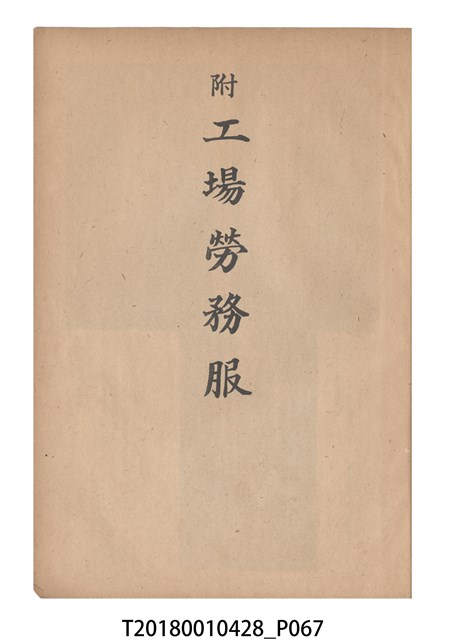 附
工場勞務服
T20180010428_P067